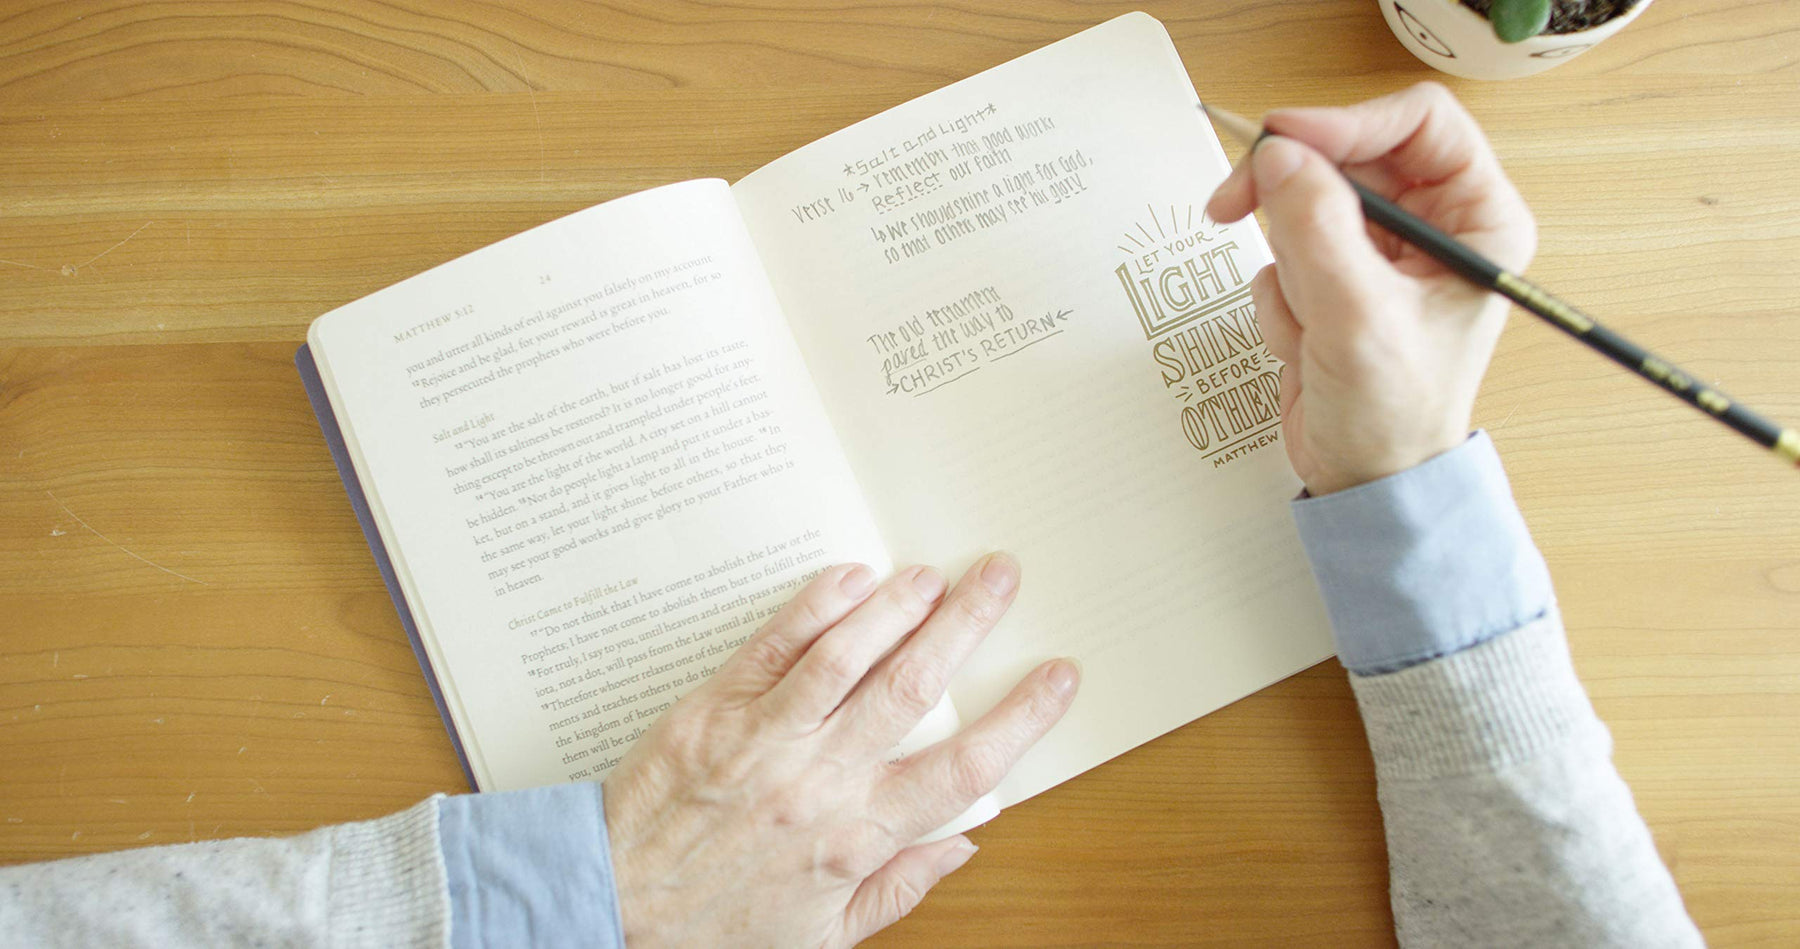 MATTHEW 5:12
24
you and utter all kinds of evil against you falsely on my account.
12 Rejoice and be glad, for your reward is great in heaven, for so
they persecuted the prophets who were before you.
Salt and Light
13 “You are the salt of the earth, but if salt has lost its taste,
how shall its saltiness be restored? It is no longer good for any-
thing except to be thrown out and trampled under people's feet.
14 “You are the light of the world. A city set on a hill cannot
be hidden. 15 Nor do people light a lamp and put it under a bas-
ket, but on a stand, and it gives light to all in the house. 16 In
the same way, let your light shine before others, so that they
may see your good works and give glory to your Father who is
in heaven.
Christ Came to Fulfill the Law
17 “Do not think that I have come to abolish the Law or the
Prophets; I have not come to abolish them but to fulfill them.
18 For truly, I say to you, until heaven and earth pass away, not an
iota, not a dot, will pass from the Law until all is
19 Therefore whoever relaxes one of the least
ments and teaches others to do the
the kingdom of heaven,
them will be
you,
*Salt and Light*
Verse 16 → remember that good works
Reflect our faith
↳ We should shine a light for God,
so that others may see his glory
The old testament
paved the way to
→CHRIST'S RETURN←
LET YOUR
LIGHT
SHINE
BEFORE
OTHERS
MATTHEW